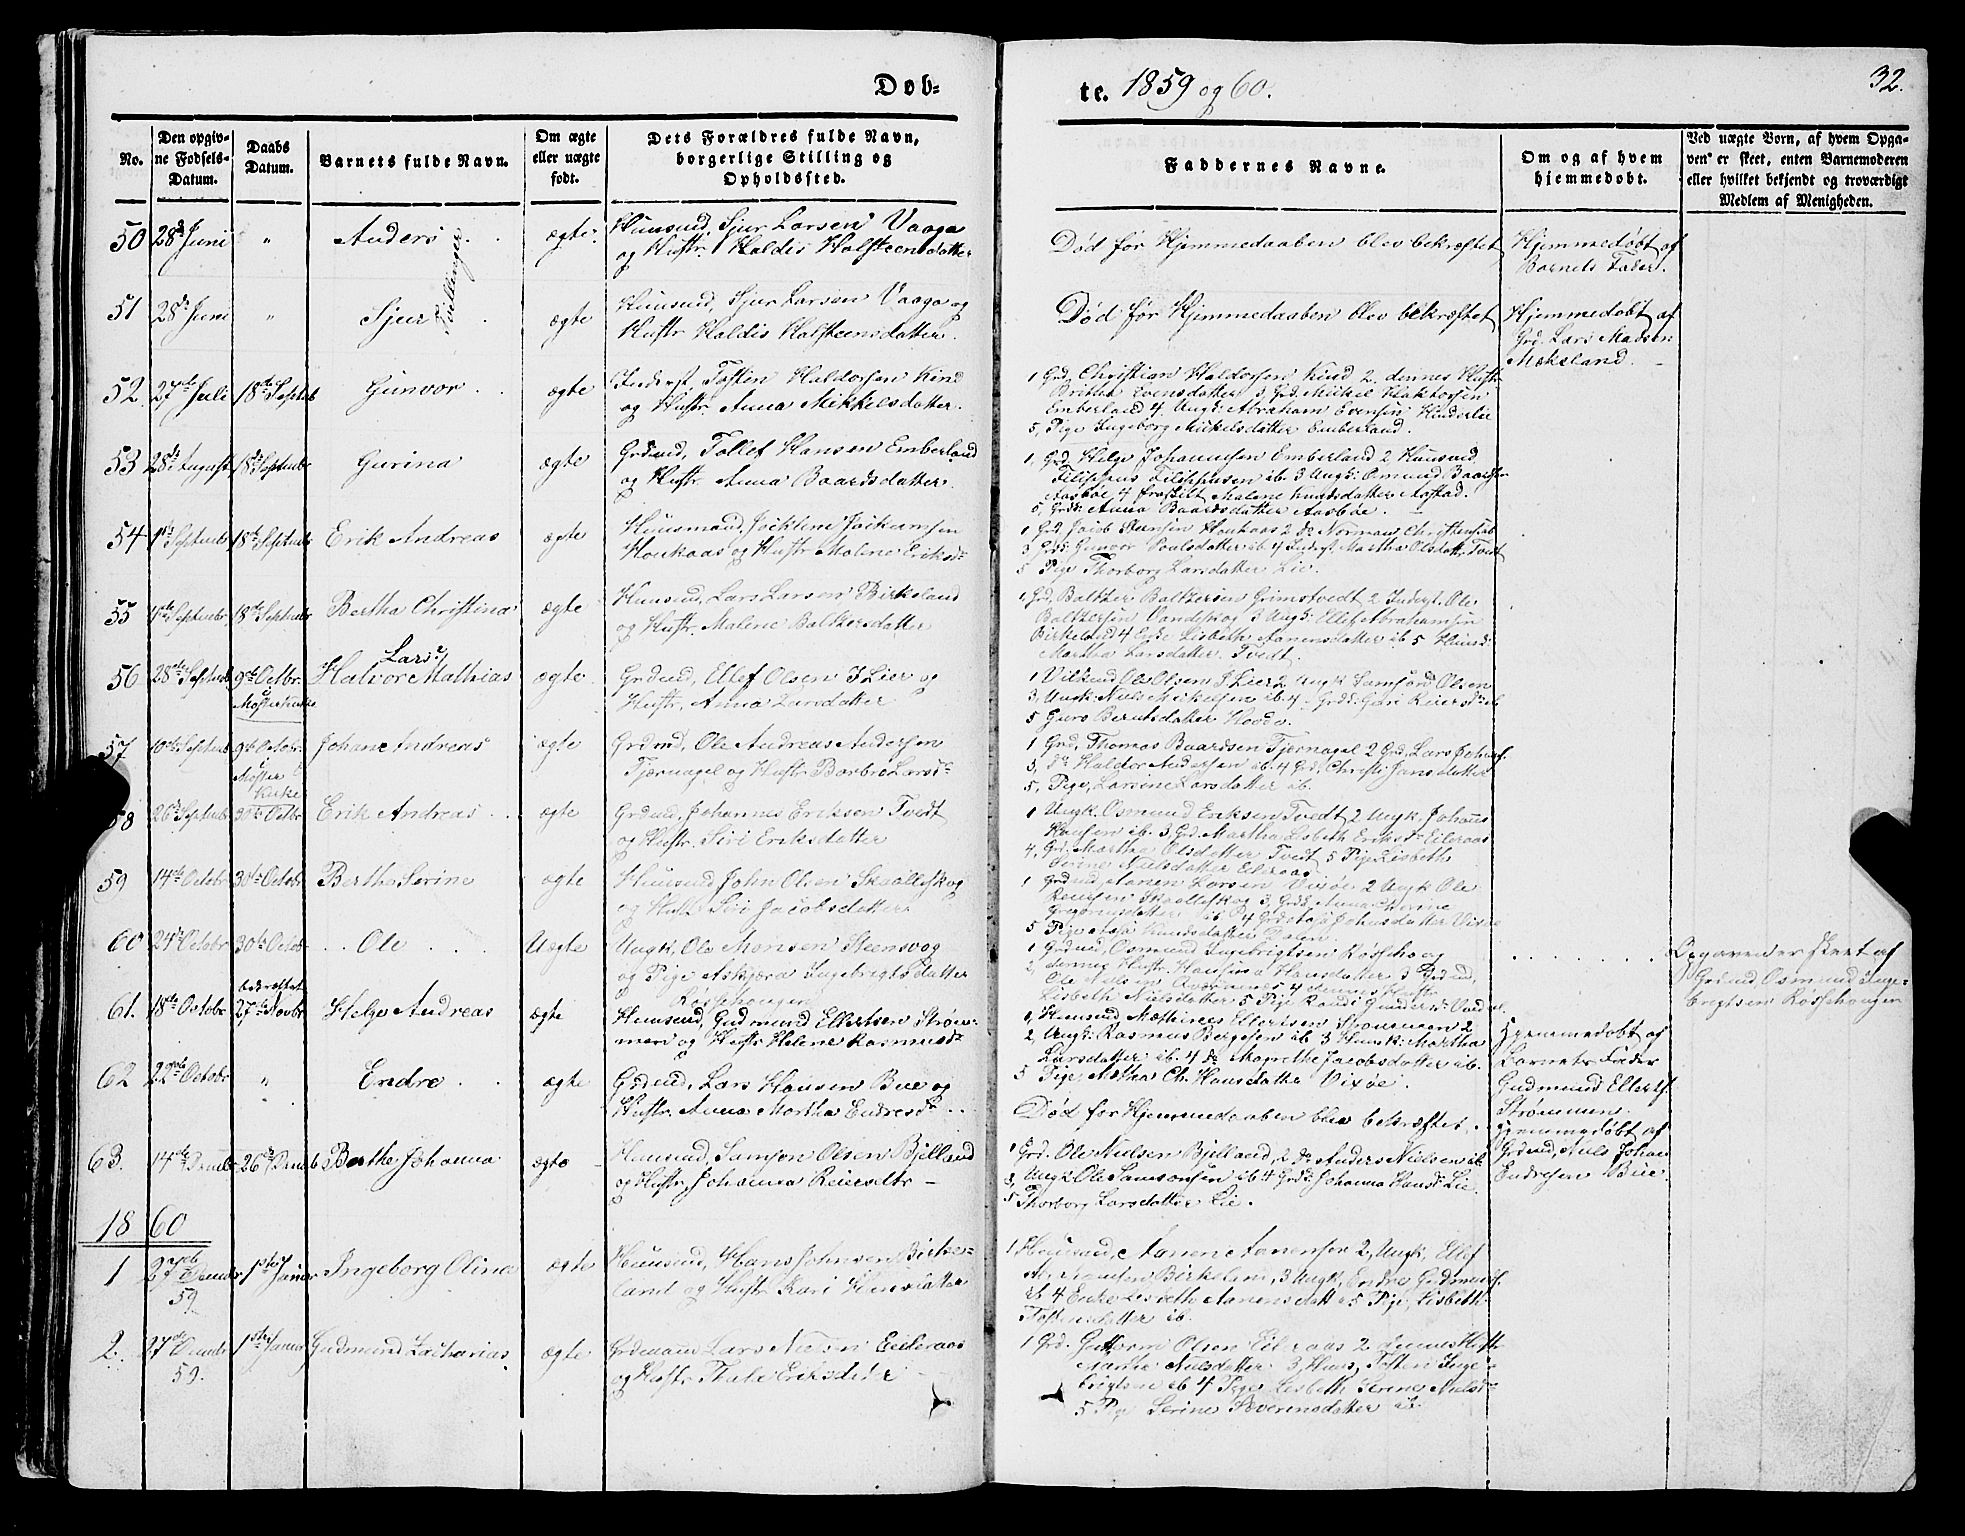 Døb-
te. 1859 og 60.
32.
No.
Den opgiv-
ne Fødsels-
Datum.
Daabs
Datum.
Barnets fulde Navn.
Om ægte
eller uægte
født.
Dets Forældres fulde Navn,
borgerlige Stilling og
Opholdssted.
Faddernes Navne.
Om og af hvem
hjemmedøbt.
Ved uægte Børn, af hvem Opga-
ven er skeet, enten Barnemoderen
eller hvilket bekjendt og troværdigt
Medlem af Menigheden.
50 28de Juni " Anders ægte Huusmd. Sjur Larsen Vaage
og Hustr. Haldis Halsteensdatter
Død før Hjemmedaaben blev bekræftet
Hjemmedøbt af
Barnets Fader.
Tvillinger
51 28de Juni " Sjur ægte Huusmd, Sjur Larsen Vaage og
Hustr Haldis Halsteensdatter.
Død før Hjemmedaaben blev bekræftet
Hjemmedøbt af
Grd. Lars Madsen
Mæksland.
52. 27de Juli 18de Septbr Gunvor ægte Inderst, Tosten Haldorsen Kind
og Hustr. Anna Mikkelsdatter.
1 Grd. Christian Haldorsen Kind 2. dennes Hustr
Britha Evensdatter 3, Grd. Mickel
Emberland 4 Ungk: Abraham Evensen
5, Pige Ingeborg Mikelsdatter Emberland.
53 28de August 18de Septembr Gurina ægte Grdmd, Tollef Hansen Emberland
og Hustr. Anna Baardsdatter
1, Grd. Helge Johannesen Emberland 2 Huusmd
Filippus Filippusen ib. 3 Ungk: Omund Baardsen
Aasbøe 4 Malene Knutsdatter Aafstad.
5, Grd: Anna Baardsdatter Aasbøe.
54 1ste Septmbr 18de Septmbr Erik Andreas ægte Huusmand, Jockumsen
Houkaas og Hustr Malene Eriksdr
1 Grd Jacob Houkaas 2 do Norman Christensen ib
3, Grd: Gunvor Poulsdatter ib. 4 Inderst. Martha Olsdattr Tvedt
5 Pige Thorborg Larsdatter Lie.
55 4de Septmbr 18de Septmbr Bertha Christina ægte Huusmd, Lars Larsen Birkeland
og Hustr. Malene Baltzersdatter
1, Grd Baltzer Baltzersen Grimstvedt 2 Inderst. Ole
Baltzersen Vandskog 3 Ungk: Ellef Abrahamsen
Birkeland 4 Enke Lisbeth Aanensdatter ib 5 Huusk:
Martha Larsdatter Tvedt.
Lars
56 28de Septmbr 9de Octbr. Halvor Mathias ægte Grdmd, Ellef Olsen Lier og
i
Mosterkirke
Hustr, Anna Larsdatter
1 Vilkmd Ole Olsen Lier 2 Ungk Samson Olsen
3, Ungk: Niels Mickelsen ib. 4 Grd: Guri Reiersdr ib
5 Guro Berntsdatter Hovde.
57 10de Septmb 9de Octobr. Johan Andreas ægte Grdmd, Ole Andreas Andersen
i
Moster
Kirke
Tjærnagel og Hustr Barbro Larsdr
1 Grd, Thomas Baardsen Tjernagel 2 Grd. Lars
3, do Haldor Andersen ib. 4 Grd, Christi Jansdatter
5, Pige, Larsine Larsdatter ib.
58 26de Septmb 30de Octbr. Erik Andreas ægte Grdmd, Johannes Eriksen Tvedt
og Hustr. Siri Eriksdatter
1 Ungk. Osmund Eriksen Tvedt 2 Ungk. Johans
Hansen ib. 3 Grd. Martha Lisbeth Eriksdr Eileraas
4, Grd: Martha Olsdatter Tvedt 5 Pige Lisbeth
Serine Nielsdatter Eileraas
59 14de Octobr 30de Octobr Bertha Serine ægte Huusmd John Olsen Skaalleskog
og Hustr Siri Jacobsdatter
1 Grdmd Aanen Larsen Vixøe 2 Ungk Ole
Skaalleskog 3, Grd: Anna Serine
Gregoriusdatter ib 4 Grdsk Johnsdatter Vixøe
5 Pige Knudsdatter
60 24de Octobr 30de Octobr Ole Uægte Ungk, Ole Monsen Steensvog
og Pige Askjæra Ingebrigtsdatter
Røssehougen
1 Grdmd, Osmund Ingebrigtsen Røsseho
2, dennes Hustr. Hansdatter 3 Grdmd,
Ole Nielsen 4 dennes Hustr
Lisbeth Nielsdatter 5 Pige Randi
Opgaven er skeet af
Grdmd Osmund Inge-
brigtsen Røssehougen
bekræftet
61. 18de Octobr 27de Novbr Helge Andreas ægte Huusmd, Gudmund Ellertsen Strøm-
men og Hustr Helene Rasmusdr
1, Huusmd Mathias Ellertsen Strømmen 2
2, Ungk: Rasmus Børgesen ib 3 Huusk: Martha
Larsdatter ib. 4 do Magrethe Jacobsdatter ib.
5 Pige, Martha Ch. Hansdatter Vixøe.
Hjemmedøbt af
Barnets Fader
Gudmund Ellerts.
Strømmen.
62 22de Octobr " Endre ægte Grdmd, Lars Hansen Bue og
Hustr. Anna Martha Endresdr
Død før Hjemmedaaben blev bekræftet.
Hjemmedøbt af
Grdmd, Niels Johan
Endresen Bue.
63. 14de Decmbr 26de Decmb Berthe Johanna ægte Huusmd, Samson Olsen Bjelland
og Hustr Johanna Reiersdtr
1 Grd. Ole Nielsen Bjelland, 2 do Anders Nielsen ib
3, Ungk Ole Samsonsen ib 4 Grd: Johanna Hansdr Lie
5 Thorborg Larsdatter Lie.
1860
1 27de Decmbr 1ste Januar Ingeborg Olina ægte Huusmd, Hans Johnsen Birke-
59.
land og Hustr Kari
1 Huusmd, Aanen Aanensen 2, Ungk, Ellef
Birkeland, 3 Ungk, Endre Gudmunds.
ib 4 Enke Lisbeth Aanensdattr 5 Pige, Lisbeth
Tostensdatter ib.
2. 27de Decmbr 1ste Januar Gudmund Zacharias ægte Grdmand Lars Eileraas
59.
og Hustr Thale Eriksdatter
1 Grd. Guttorm Olsen Eileraas 2 dennes Hustr
Marthe Nielsdatter 3 Huus, Tosten Inge-
brigtsen ib 4 Pige Lisbeth Serine Nielsdr
5 Pige Serine Severinsdatter ib.